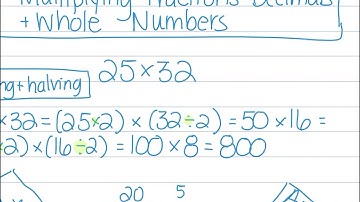 Multiplying Fractions Decimals
+ Whole Numbers
25×32
ng+halving
×32=(25×2)×(32÷2)=50×16=
×2)×(16÷2)=100×8=800
20 5